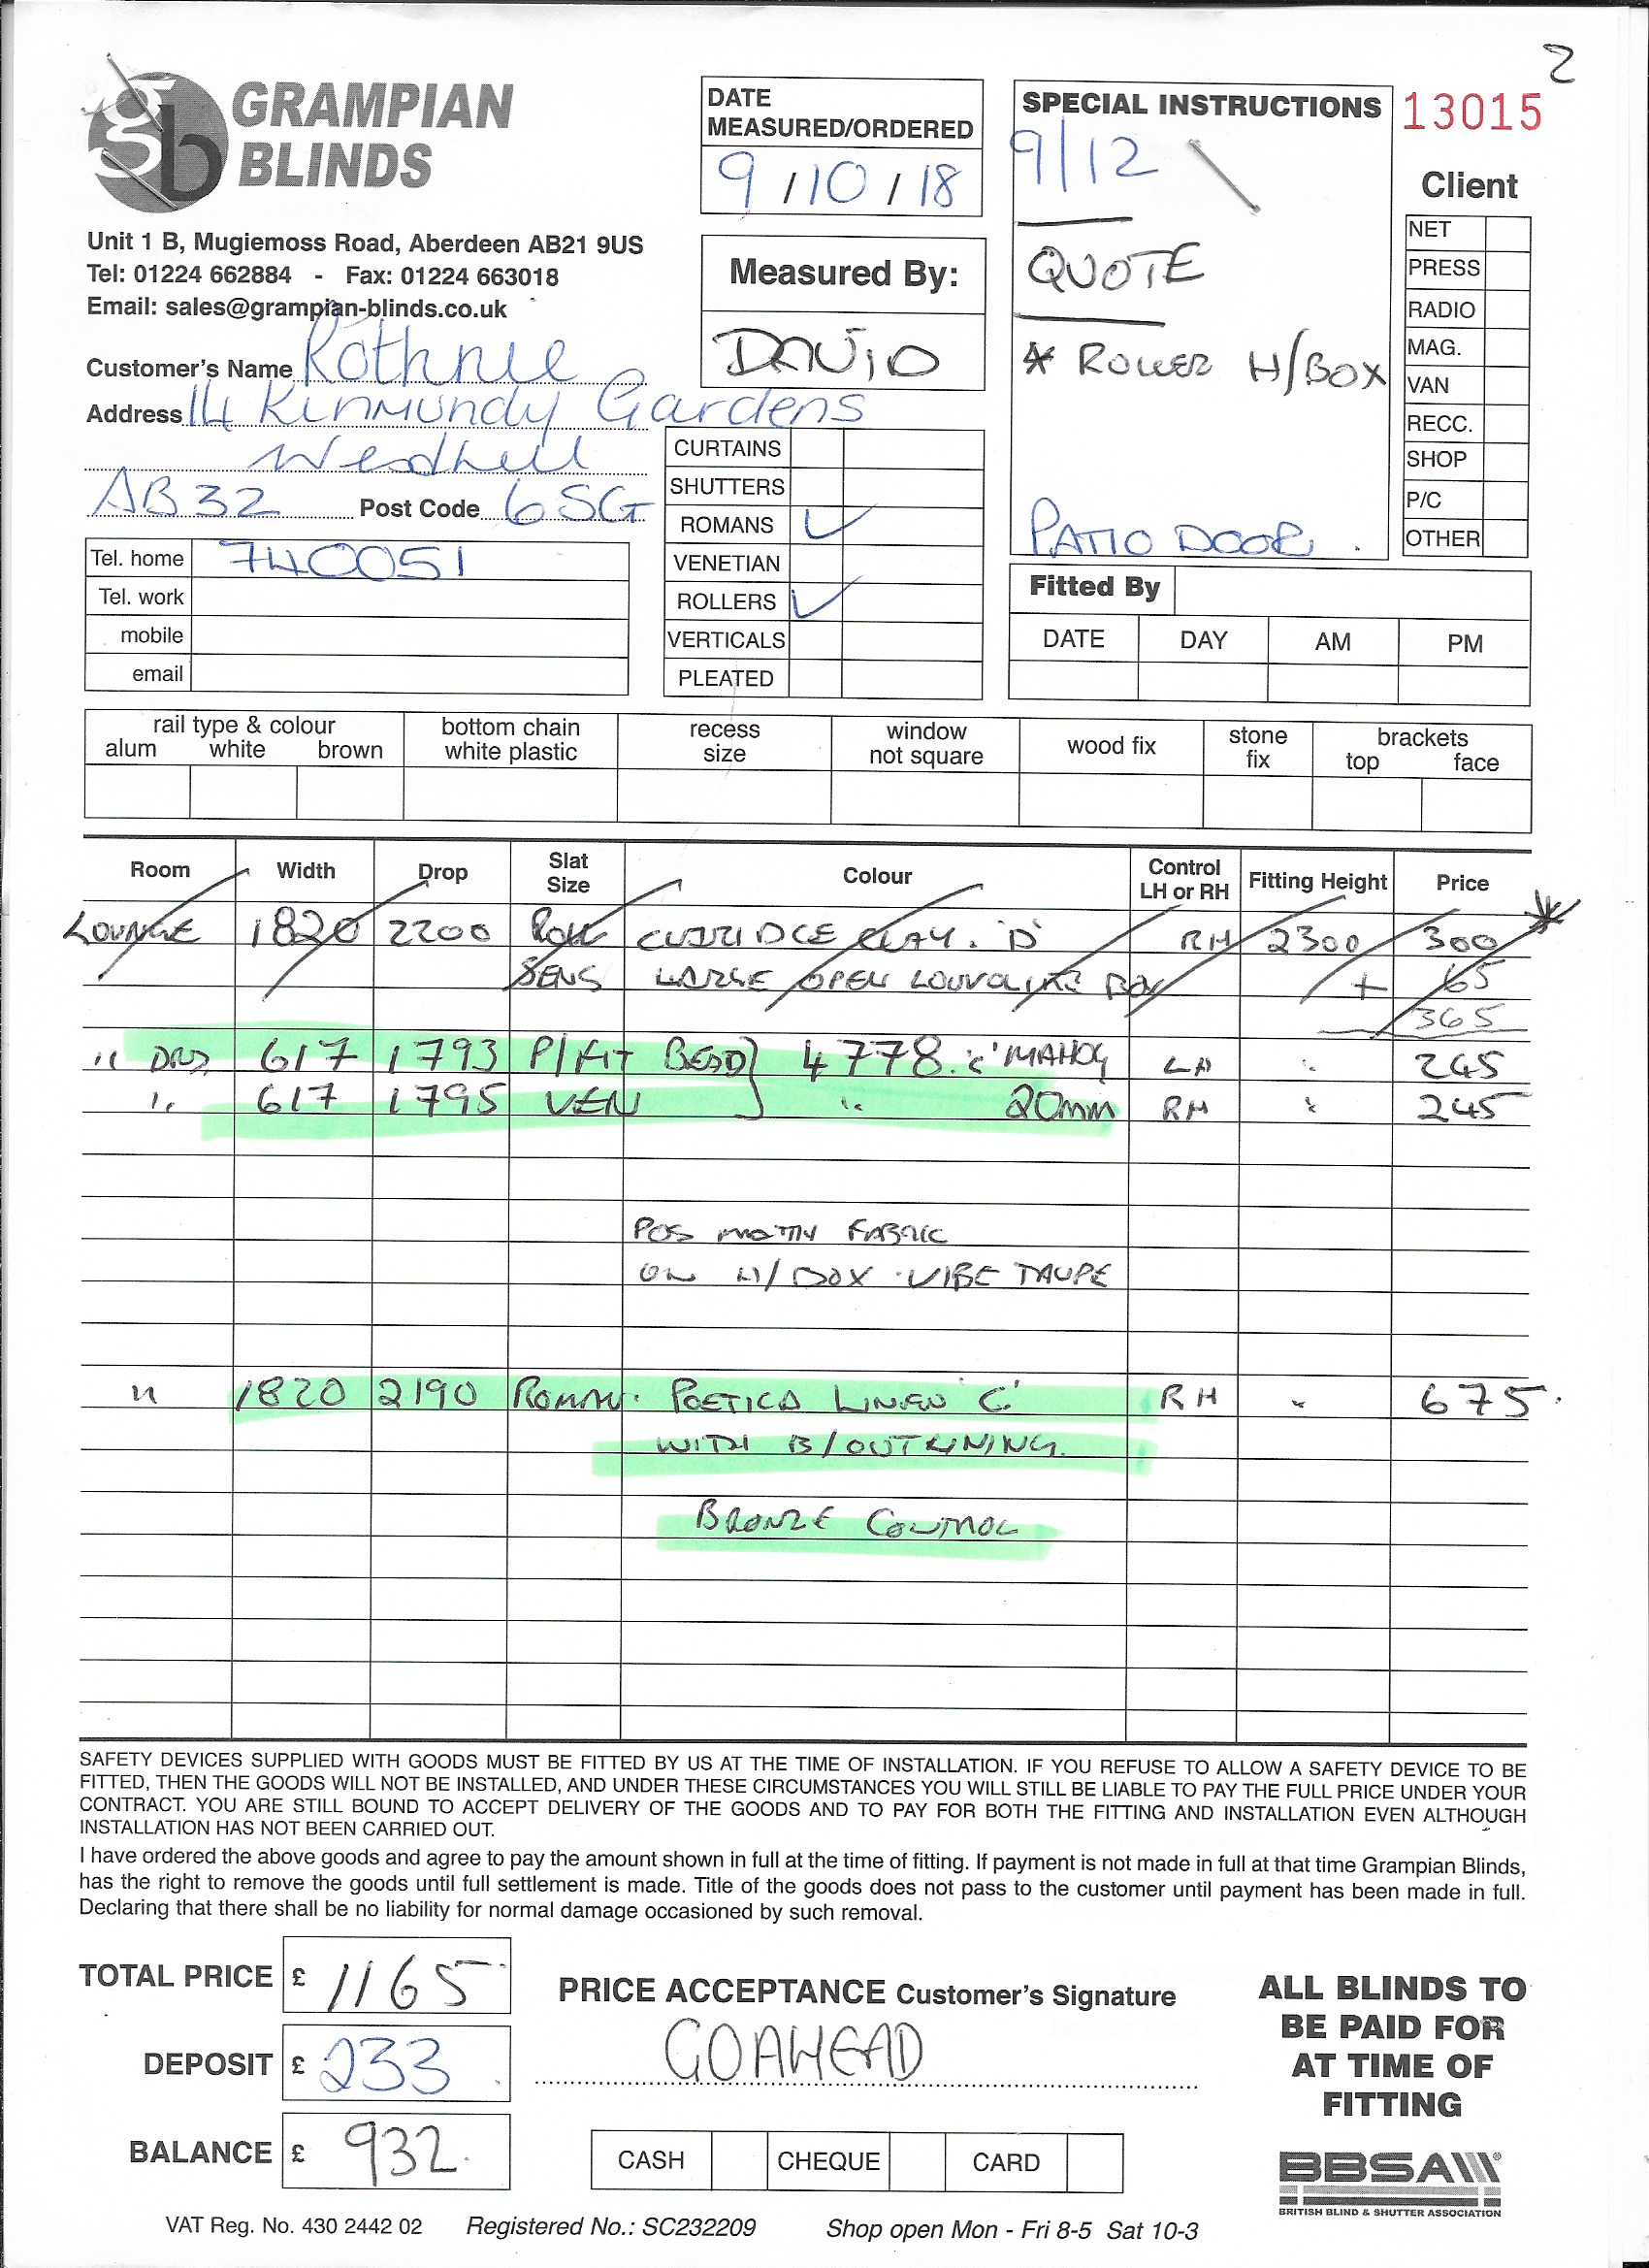 2
gb GRAMPIAN
BLINDS
Unit 1 B, Mugiemoss Road, Aberdeen AB21 9US
Tel: 01224 662884 - Fax: 01224 663018
Email: sales@grampian-blinds.co.uk
Customer's Name Rothnie
Address 14 Kinmundy Gardens
Westhill
AB32 Post Code 6SG
Tel. home 740051
Tel. work
mobile
email
DATE
MEASURED/ORDERED
9/10/18
Measured By:
DAVID
CURTAINS
SHUTTERS
ROMANS
VENETIAN
ROLLERS
VERTICALS
PLEATED
SPECIAL INSTRUCTIONS
9/12
QUOTE
* ROLLER H/BOX
PATIO DOOR.
13015
Client
NET
PRESS
RADIO
MAG.
VAN
RECC.
SHOP
P/C
OTHER
Fitted By
DATE DAY AM PM
rail type & colour
alum white brown
bottom chain
white plastic
recess
size
window
not square
wood fix
stone
fix
brackets
top face
Room Width Drop Slat Size Colour Control LH or RH Fitting Height Price
LOUNGE 1820 2200 ROLL CLAY. 'D' RH 2300 300 *
SENS LARGE OPEN BOX + 65
365
" 617 1793 P/FIT BEAD } 4778. 'C' MAHOG LH " 245
" 617 1795 VEN " 20mm RH " 245
POS FABRIC
ON H/BOX VIBE TAUPE
" 1820 2190 ROMAN. POETICA LINEN 'C' RH " 675.
WITH B/OUT LINING.
BRONZE CONTROL
SAFETY DEVICES SUPPLIED WITH GOODS MUST BE FITTED BY US AT THE TIME OF INSTALLATION. IF YOU REFUSE TO ALLOW A SAFETY DEVICE TO BE
FITTED, THEN THE GOODS WILL NOT BE INSTALLED, AND UNDER THESE CIRCUMSTANCES YOU WILL STILL BE LIABLE TO PAY THE FULL PRICE UNDER YOUR
CONTRACT. YOU ARE STILL BOUND TO ACCEPT DELIVERY OF THE GOODS AND TO PAY FOR BOTH THE FITTING AND INSTALLATION EVEN ALTHOUGH
INSTALLATION HAS NOT BEEN CARRIED OUT.
I have ordered the above goods and agree to pay the amount shown in full at the time of fitting. If payment is not made in full at that time Grampian Blinds,
has the right to remove the goods until full settlement is made. Title of the goods does not pass to the customer until payment has been made in full.
Declaring that there shall be no liability for normal damage occasioned by such removal.
TOTAL PRICE £ 1165
DEPOSIT £ 233.
BALANCE £ 932.
PRICE ACCEPTANCE Customer's Signature
GOAHEAD
CASH CHEQUE CARD
ALL BLINDS TO
BE PAID FOR
AT TIME OF
FITTING
BBSA
BRITISH BLIND & SHUTTER ASSOCIATION
VAT Reg. No. 430 2442 02 Registered No.: SC232209 Shop open Mon - Fri 8-5 Sat 10-3